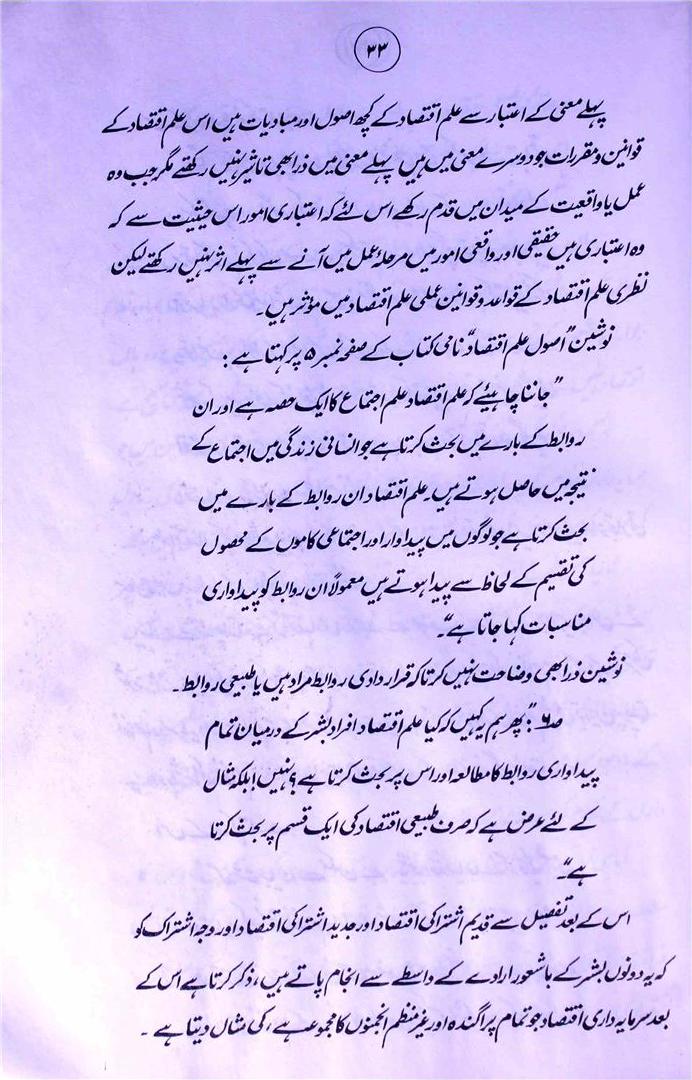 ۳۳
پہلے معنی کے اعتبار سے علم اقتصاد کے کچھ اصول اور مبادیات ہیں اس علم اقتصاد کے
قوانین و مقررات جو دوسرے معنی میں ہیں پہلے معنی میں ذرا بھی تاثیر نہیں رکھتے مگر جب وہ
عمل یا واقعیت کے میدان میں قدم رکھے اس لئے کہ اعتباری امور اس حیثیت سے کہ
وہ اعتباری ہیں حقیقی اور واقعی امور میں مرحلۂ عمل میں آنے سے پہلے اثر نہیں رکھتے لیکن
نظری علم اقتصاد کے قواعد و قوانین عملی علم اقتصاد میں مؤثر ہیں۔
نوشین "اصول علم اقتصاد" نامی کتاب کے صفحہ نمبر ۵ پر کہتا ہے :
"جاننا چاہیئے کہ علم اقتصاد علم اجتماع کا ایک حصہ ہے اور ان
روابط کے بارے میں بحث کرتا ہے جو انسانی زندگی میں اجتماع کے
نتیجہ میں حاصل ہوتے ہیں۔ علم اقتصاد ان روابط کے بارے میں
بحث کرتا ہے جو لوگوں میں پیداوار اور اجتماعی کاموں کے محصول
کی تقسیم کے لحاظ سے پیدا ہوتے ہیں معمولاً ان روابط کو پیداواری
مناسبات کہا جاتا ہے"۔
نوشین ذرا بھی وضاحت نہیں کرتا کہ قراردادی روابط مراد ہیں یا طبیعی روابط۔
ص۶ : "پھر ہم یہ کہیں کہ کیا علم اقتصاد افراد بشر کے درمیان تمام
پیداواری روابط کا مطالعہ اور اس پر بحث کرتا ہے؟ نہیں! بلکہ مثال
کے لئے عرض ہے کہ صرف طبیعی اقتصاد کی ایک قسم پر بحث کرتا
ہے"۔
اس کے بعد تفصیل سے قدیم اشتراکی اقتصاد اور جدید اشتراکی اقتصاد اور وجہ اشتراک کو
کہ یہ دونوں بشر کے باشعور ارادے کے واسطے سے انجام پاتے ہیں، ذکر کرتا ہے اس کے
بعد سرمایہ داری اقتصاد جو تمام پراگندہ اور غیر منظم انجمنوں کا مجموعہ ہے، کی مثال دیتا ہے۔